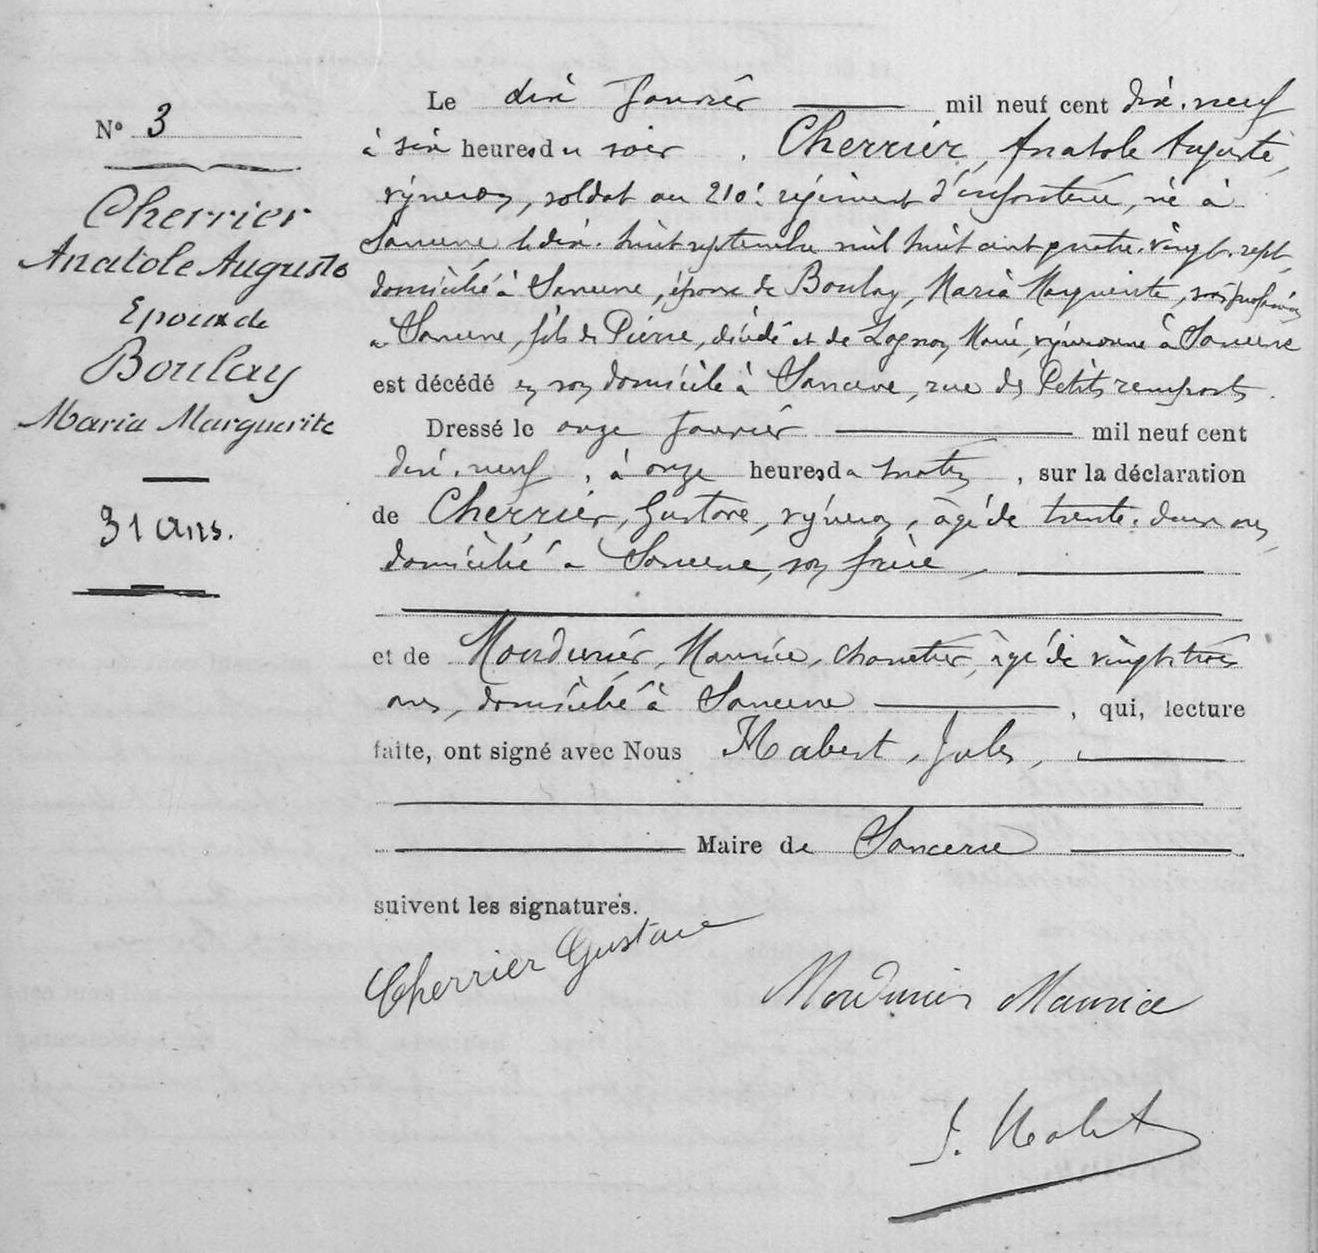 N° 3
Cherrier
Anatole Auguste
Epoux de
Boulay
Maria Marguerite
31 ans.
Le dix Janvier mil neuf cent dix-neuf
à six heures du soir, Cherrier, Anatole Auguste,
vigneron, soldat au 210e régiment d'infanterie, né à
Sancerre le dix-huit septembre mil huit cent quatre-vingt-sept,
domicilié à Sancerre, époux de Boulay, Maria Marguerite, sans profession
à Sancerre, fils de Pierre, décédé et de Marie, vigneronne à Sancerre
est décédé en son domicile à Sancerre, rue des Petits remparts.
Dressé le onze Janvier mil neuf cent
dix-neuf, à onze heures du matin, sur la déclaration
de Cherrier, Gustave, vigneron, âgé de trente-deux ans,
domicilié à Sancerre, son frère,
et de Maurice, charretier, âgé de vingt-trois
ans, domicilié à Sancerre, qui, lecture
faite, ont signé avec Nous Habert, Jules,
Maire de Sancerre
suivent les signatures.
Cherrier Gustave
Maurice
J. Habert